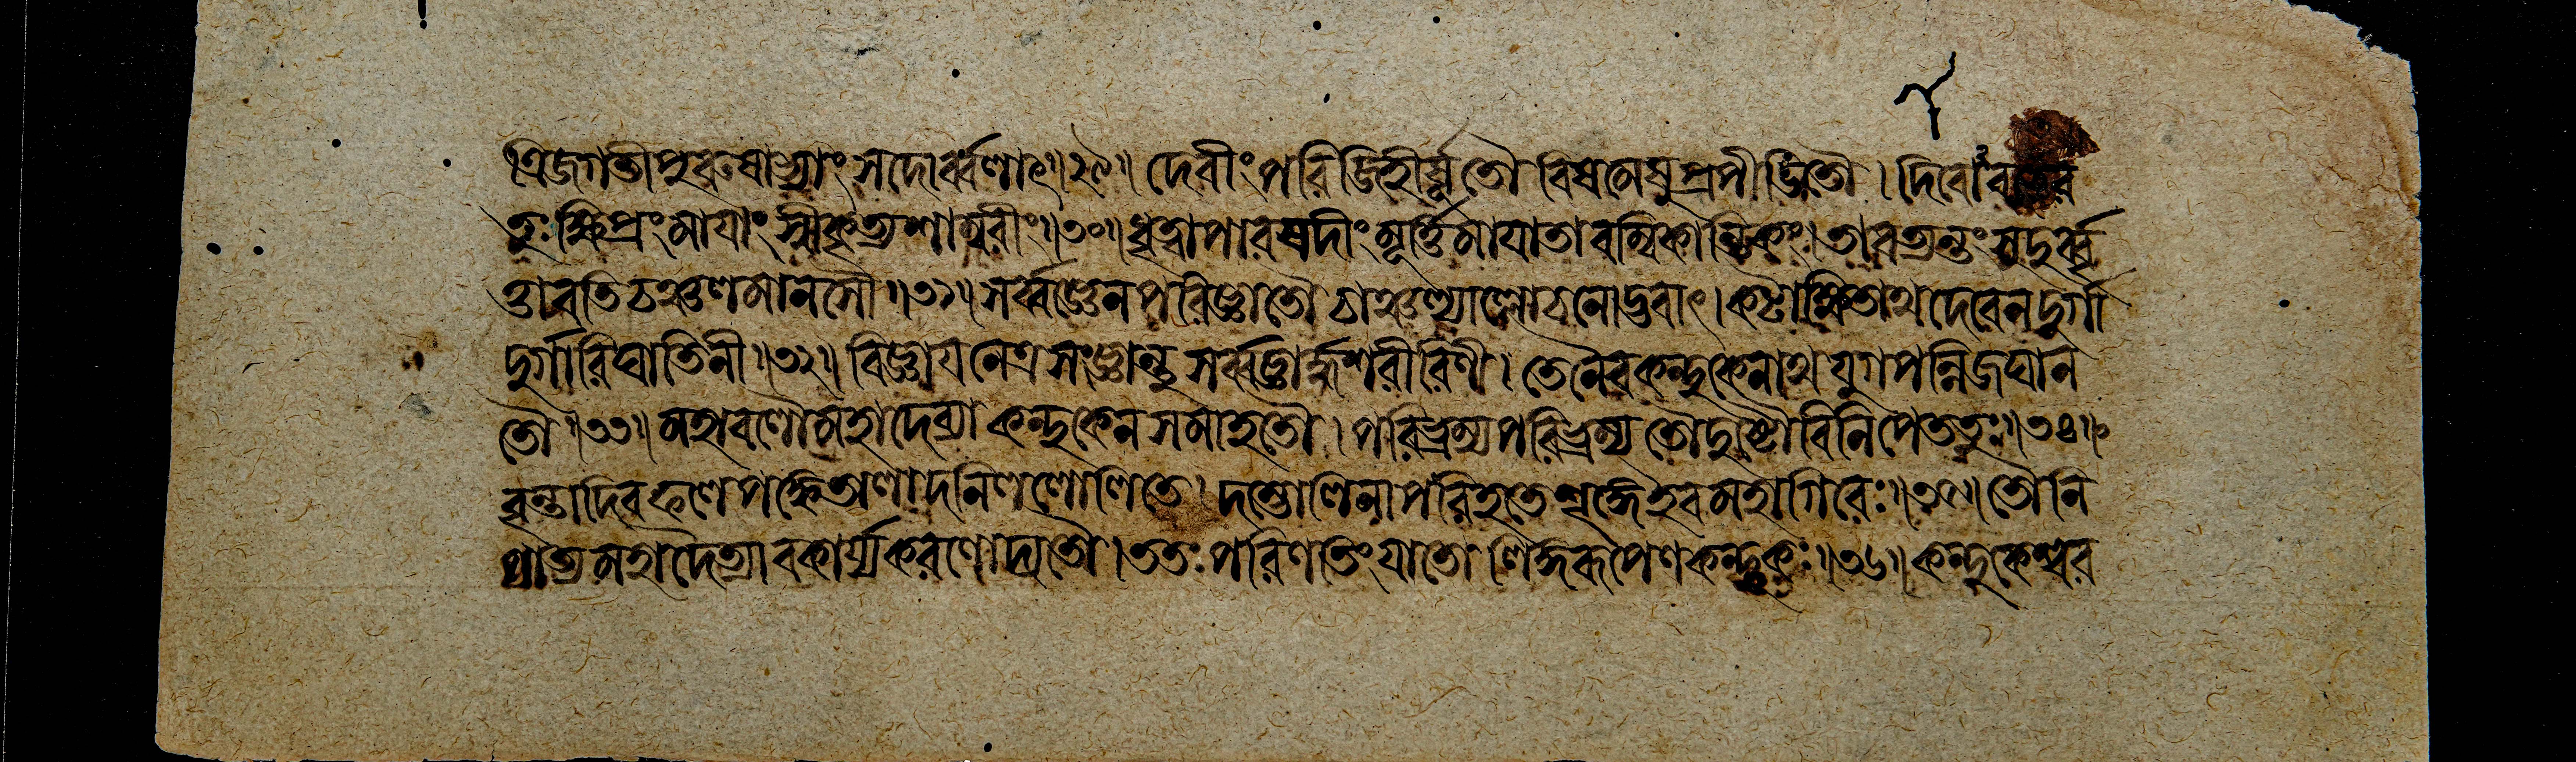 ত্রিজগতীপুরুষাখ্যাং সদোর্ব্বলাৎ॥২৯॥ দেবীং পরিজিহীর্ষূতৌ বিষমেষুপ্রপীডিতৌ। দিবোঽবতের
তুঃ ক্ষিপ্রং মাযাং স্বীকৃত্য শাম্বরীং॥৩০॥ ধৃত্বা পারষদীং মূর্ত্তিমাযাতাবম্বিকান্তিকং। তাবত্যন্তং সুদুর্ব্বৃ
ত্তাবতিচঞ্চলমানসৌ॥৩১॥ সর্ব্বজ্ঞেন পরিজ্ঞাতৌ চাঞ্চল্যাল্লোচনোদ্ভবাৎ। কটাক্ষিতাথ দেবেন দুর্গা
দুর্গারিঘাতিনী॥৩২॥ বিজ্ঞায নেত্রসংজ্ঞান্তু সর্ব্বজ্ঞার্দ্ধশরীরিণী। তেনৈব কন্দুকেনাথ যুগপন্নিজঘান
তৌ॥৩৩॥ মহাবলৌ মহাদেব্যা কন্দুকেন সমাহতৌ। পরিভ্রম্য পরিভ্রম্য তৌ দুষ্টৌ বিনিপেততুঃ॥৩৪॥
বৃন্তাদিব ফলে পক্বে তালাদনিললোলিতে। দম্ভোলিনা পরিহতে শৃঙ্গে ইব মহাগিরেঃ॥৩৫॥ তৌ নি
পাত্য মহাদৈত্যাবকার্য্যকরণোদ্যতৌ। ততঃ পরিণতিং যাতো লিঙ্গরূপেণ কন্দুকঃ॥৩৬॥ কন্দুকেশ্বর